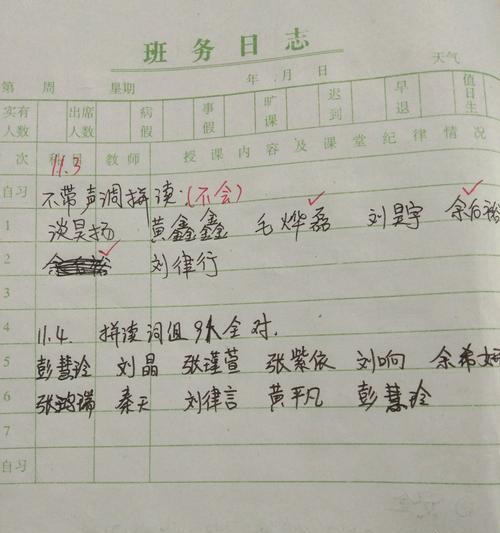 班务日志
第 周 星期 年 月 日 天气
实有人数 出席人数 病假 事假 旷课 迟到 早退 值日生
次 科目 教师 授课内容及课堂纪律情况
11.3
自习 不带声调拼读(不会)
1 淡昊扬 黄鑫鑫 毛烨磊 刘昊宇 余启裕
2 刘律行
3
4 11.4. 拼读词组9人全对.
5 彭慧玲 刘晶 张瑾萱 张紫依 刘响 余希
6 张 瑞 秦天 刘律言 黄平凡 彭慧玲
7
自习